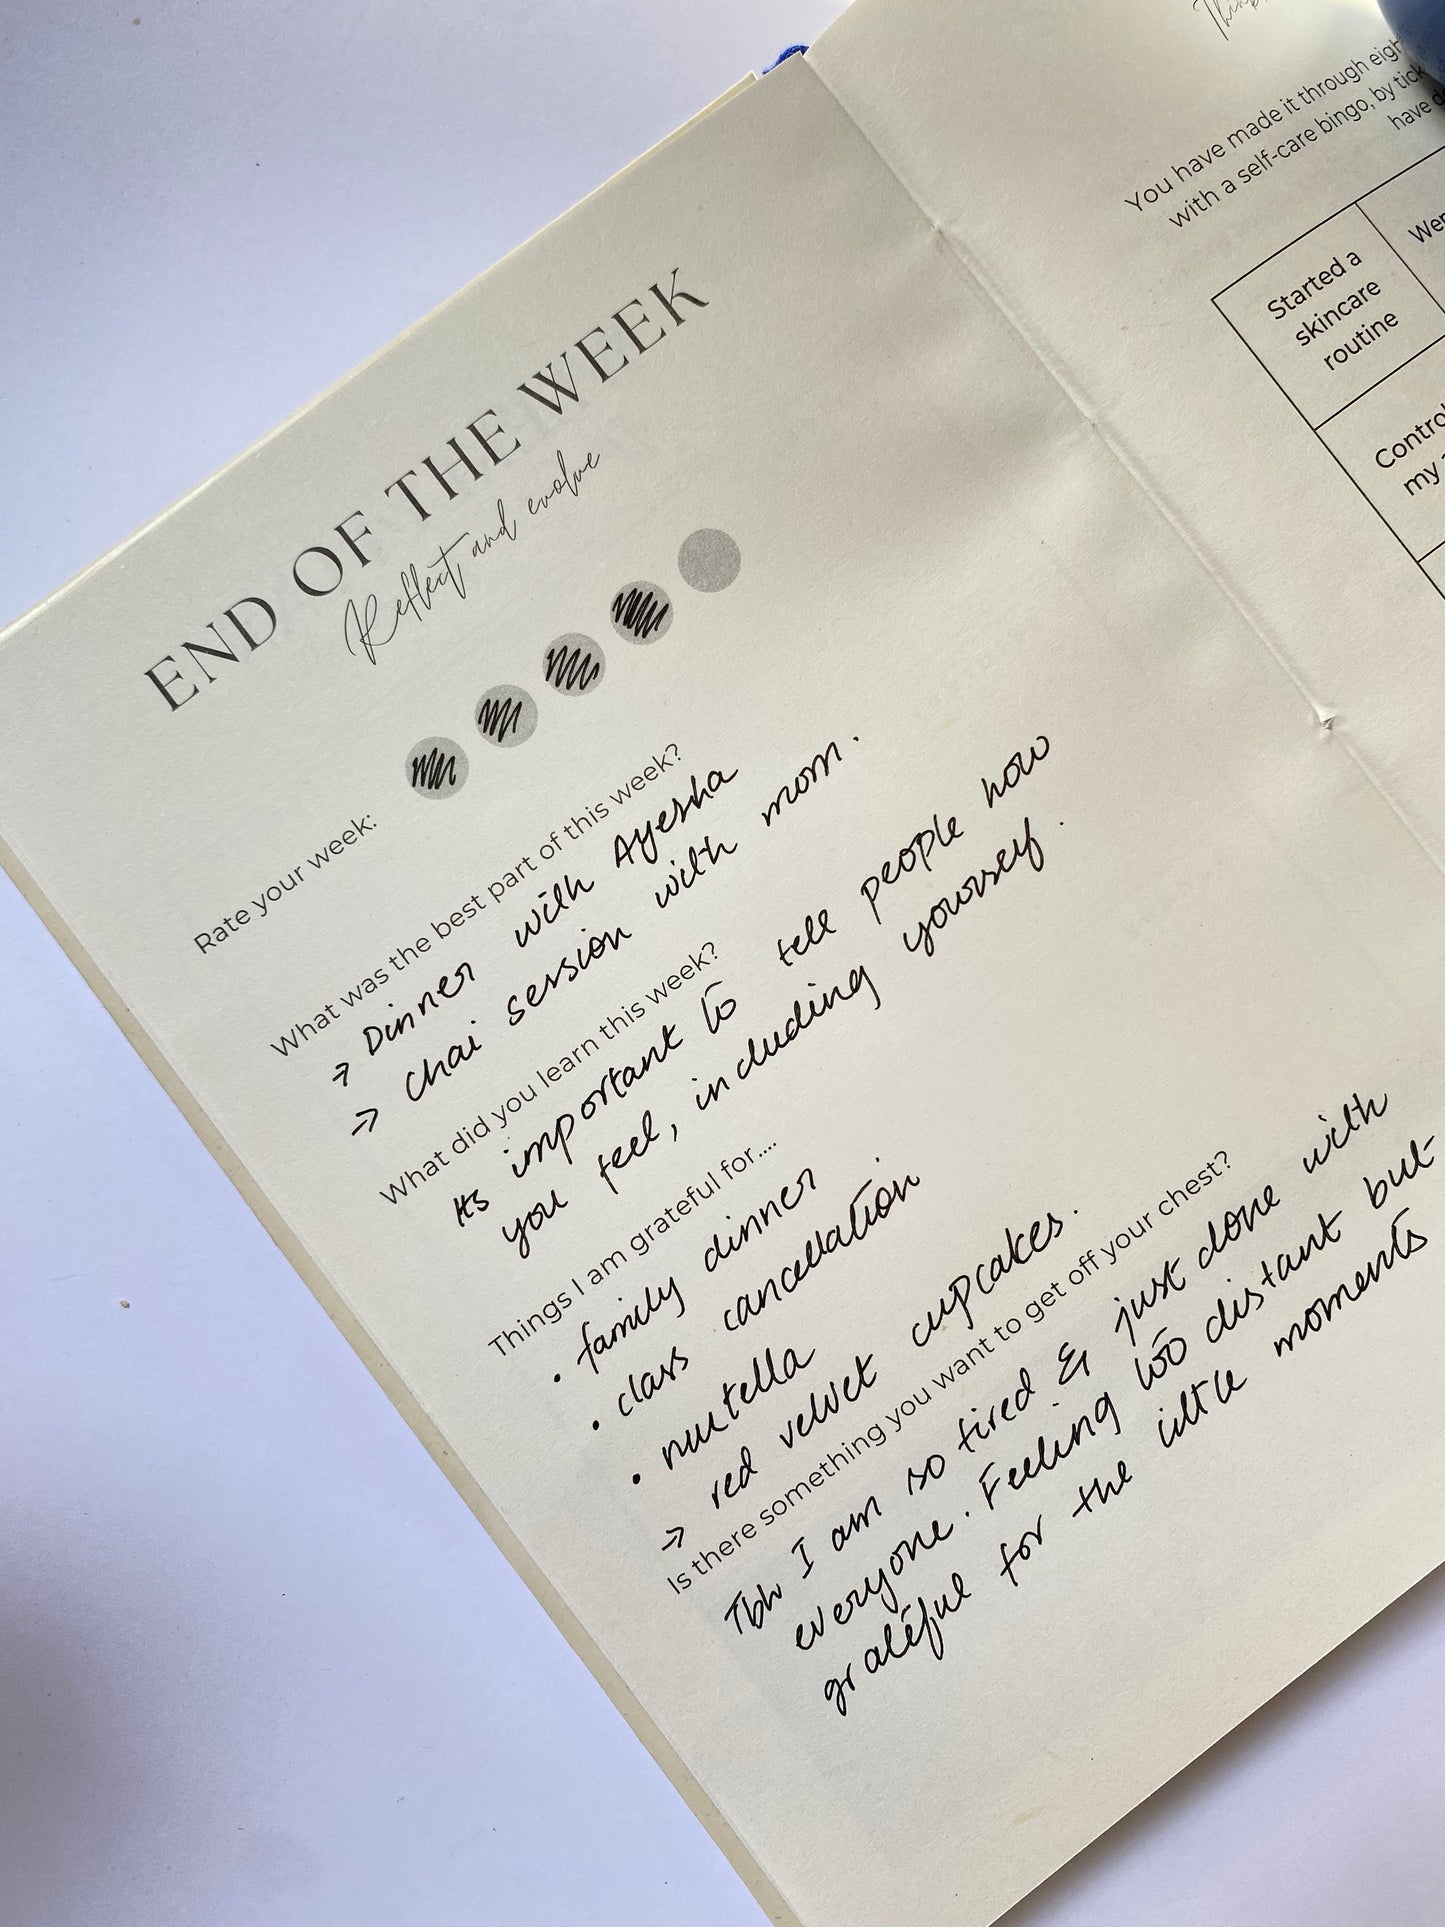 END OF THE WEEK
Reflect and evolve
Rate your week:
What was the best part of this week?
→ Dinner with Ayesha
→ chai session with mom.
What did you learn this week?
Its important to tell people how
you feel, including yourself.
Things I am grateful for....
• family dinner
• class cancellation
• nutella
→ red velvet cupcakes.
Is there something you want to get off your chest?
Tbh I am so tired & just done with
everyone. Feeling too distant but
grateful for the little moments
You have made it through
with a self-care bingo, by
have
Started a
skincare
routine
my